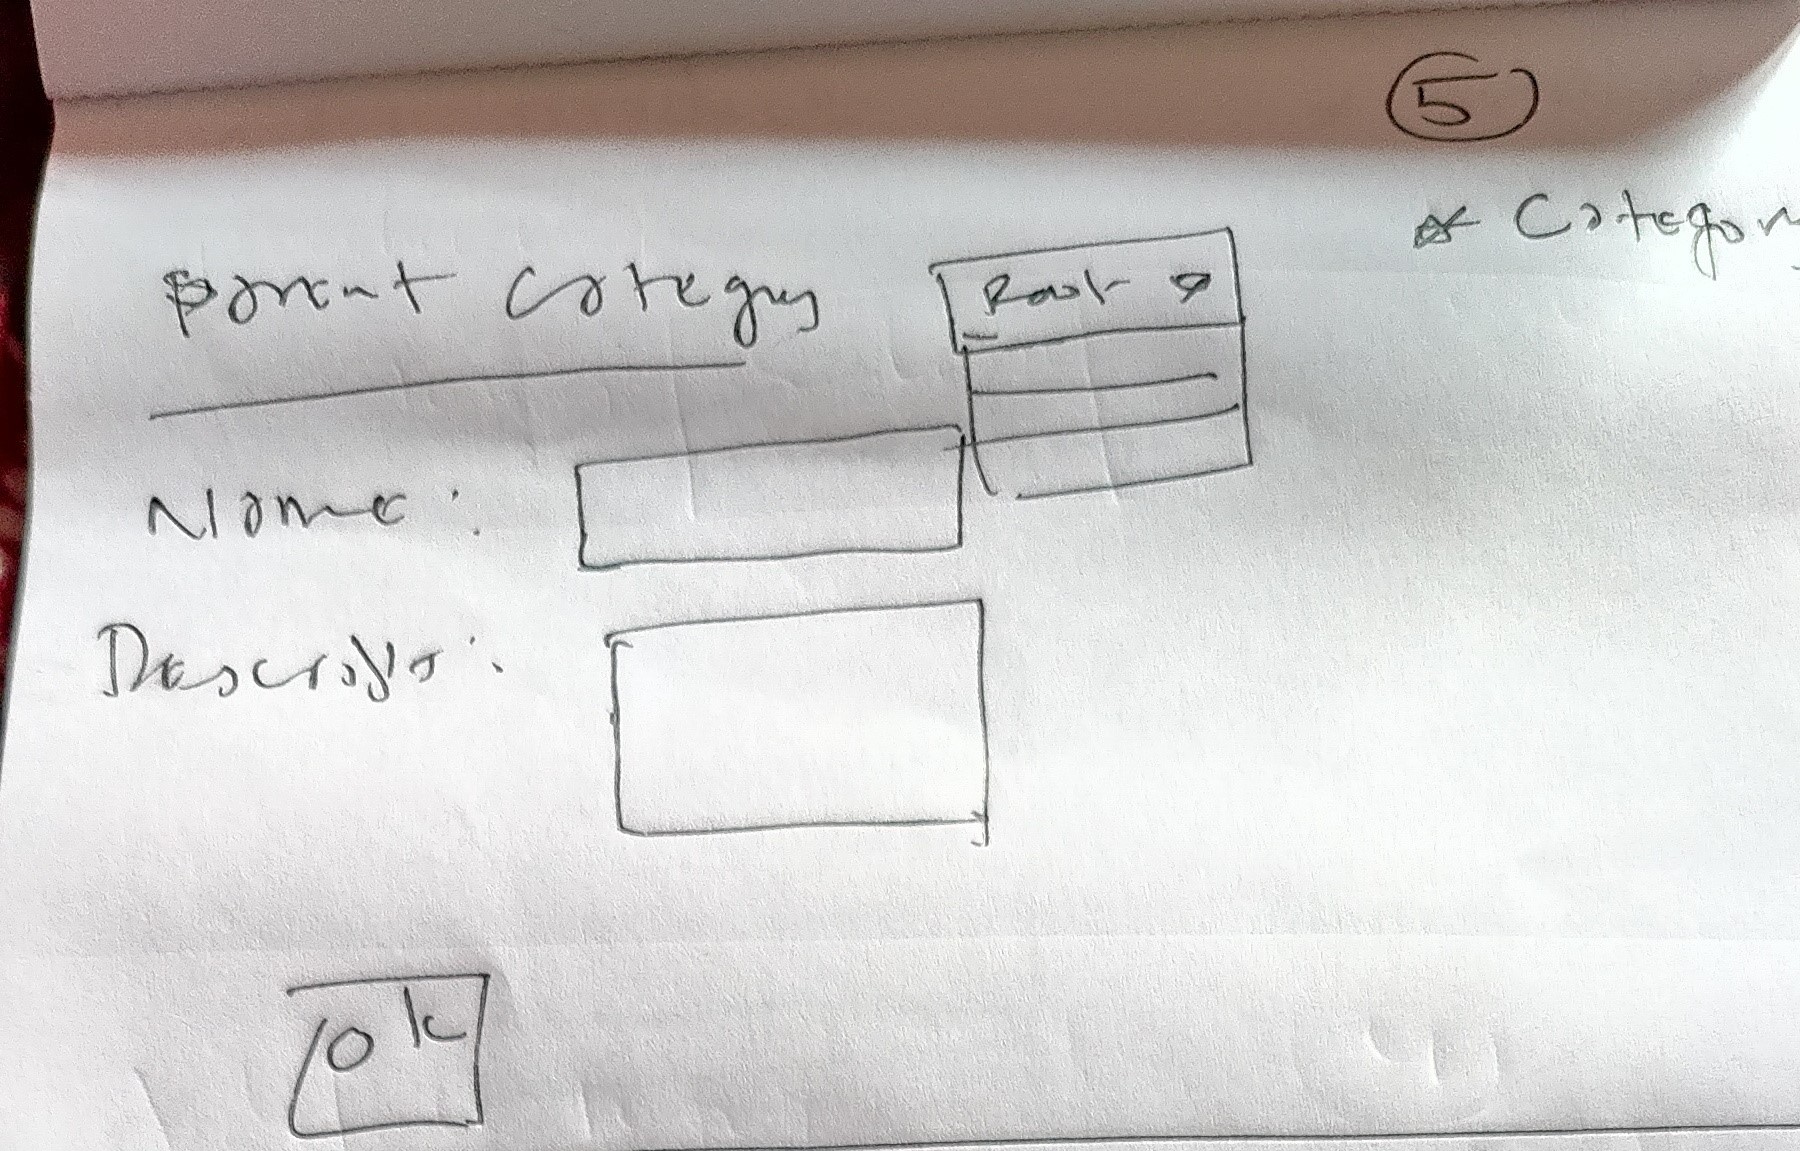 5
* Category
Parent Category
Root
Name:
Descriptio:
Ok